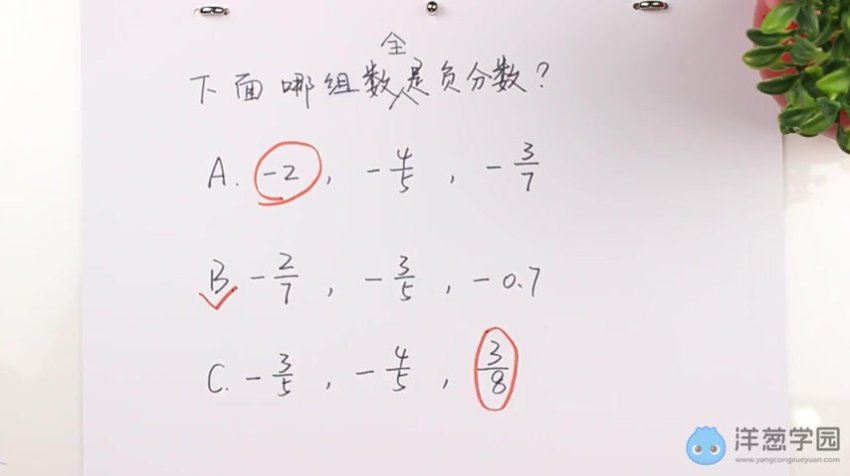 下面哪组数全是负分数？
A. -2, -4/5, -3/7
B -2/7, -3/5, -0.7
C. -3/5, -4/5, 3/8
洋葱学园
www.yangcongxueyuan.com